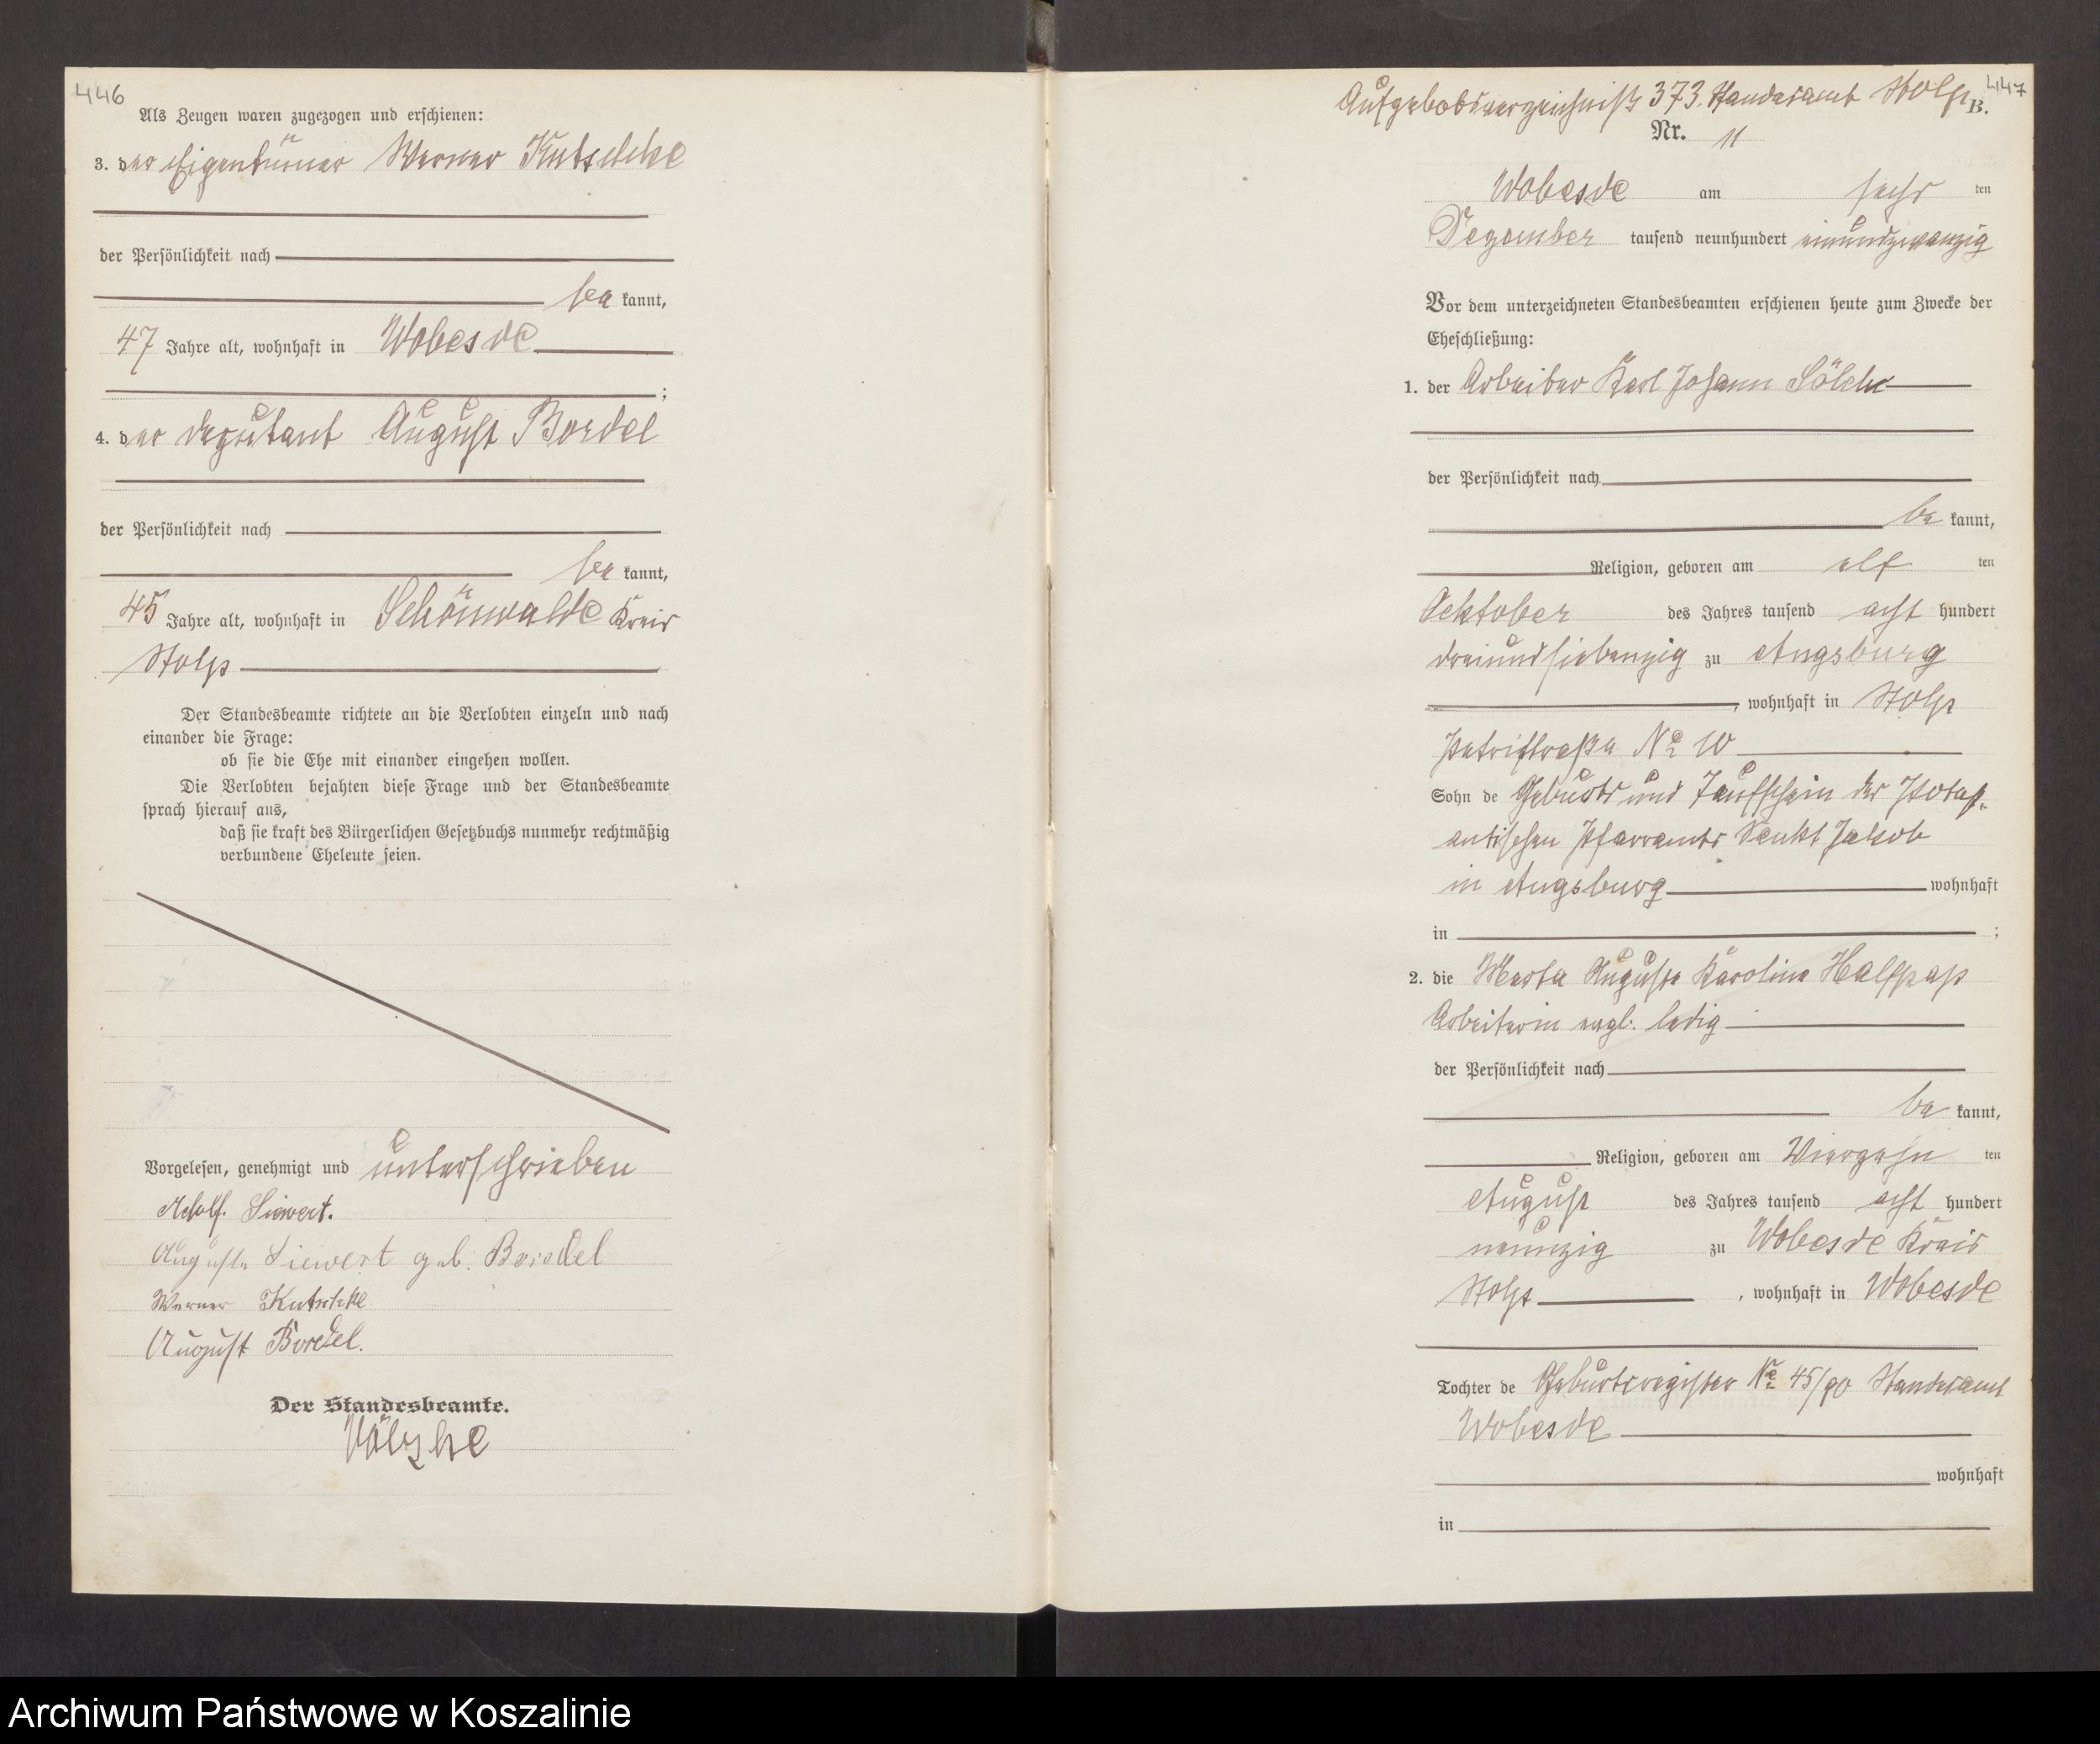 446
Als Zeugen waren zugezogen und erschienen:
3. der Eigentümer Werner Kutschke
der Persönlichkeit nach
be kannt,
47 Jahre alt, wohnhaft in Wobesde
;
4. der Deputant August Bordel
der Persönlichkeit nach
be kannt,
45 Jahre alt, wohnhaft in Schönwalde Kreis
Stolp
Der Standesbeamte richtete an die Verlobten einzeln und nach
einander die Frage:
ob sie die Ehe mit einander eingehen wollen.
Die Verlobten bejahten diese Frage und der Standesbeamte
sprach hierauf aus,
daß sie kraft des Bürgerlichen Gesetzbuchs nunmehr rechtmäßig
verbundene Eheleute seien.
Vorgelesen, genehmigt und unterschrieben
Adolf. Siewert.
Auguste Siewert geb. Bordel
Werner Kutschke
August Bordel.
Der Standesbeamte.
Völzke
447
Aufgebotsverzeichniß 373. Standesamt Stolp
B.
Nr. 11
Wobesde am sechs ten
Dezember tausend neunhundert einundzwanzig
Vor dem unterzeichneten Standesbeamten erschienen heute zum Zwecke der
Eheschließung:
1. der Arbeiter Karl Johann
der Persönlichkeit nach
be kannt,
Religion, geboren am elf ten
Ocktober des Jahres tausend acht hundert
dreiundsiebenzig zu Augsburg
, wohnhaft in Stolp
Petristraße No 10
Sohn de Geburts und Taufschein der Protest.
antischen Pfarramts Sankt Jakob
in Augsburg wohnhaft
in ;
2. die Marta Auguste Karoline Halfpap
Arbeiterin evgl. ledig
der Persönlichkeit nach
be kannt,
Religion, geboren am Vierzehn ten
August des Jahres tausend acht hundert
neunzig zu Wobesde Kreis
Stolp , wohnhaft in Wobesde
Tochter de Geburtsregister No 45/90 Standesamt
Wobesde
wohnhaft
in
Archiwum Państwowe w Koszalinie